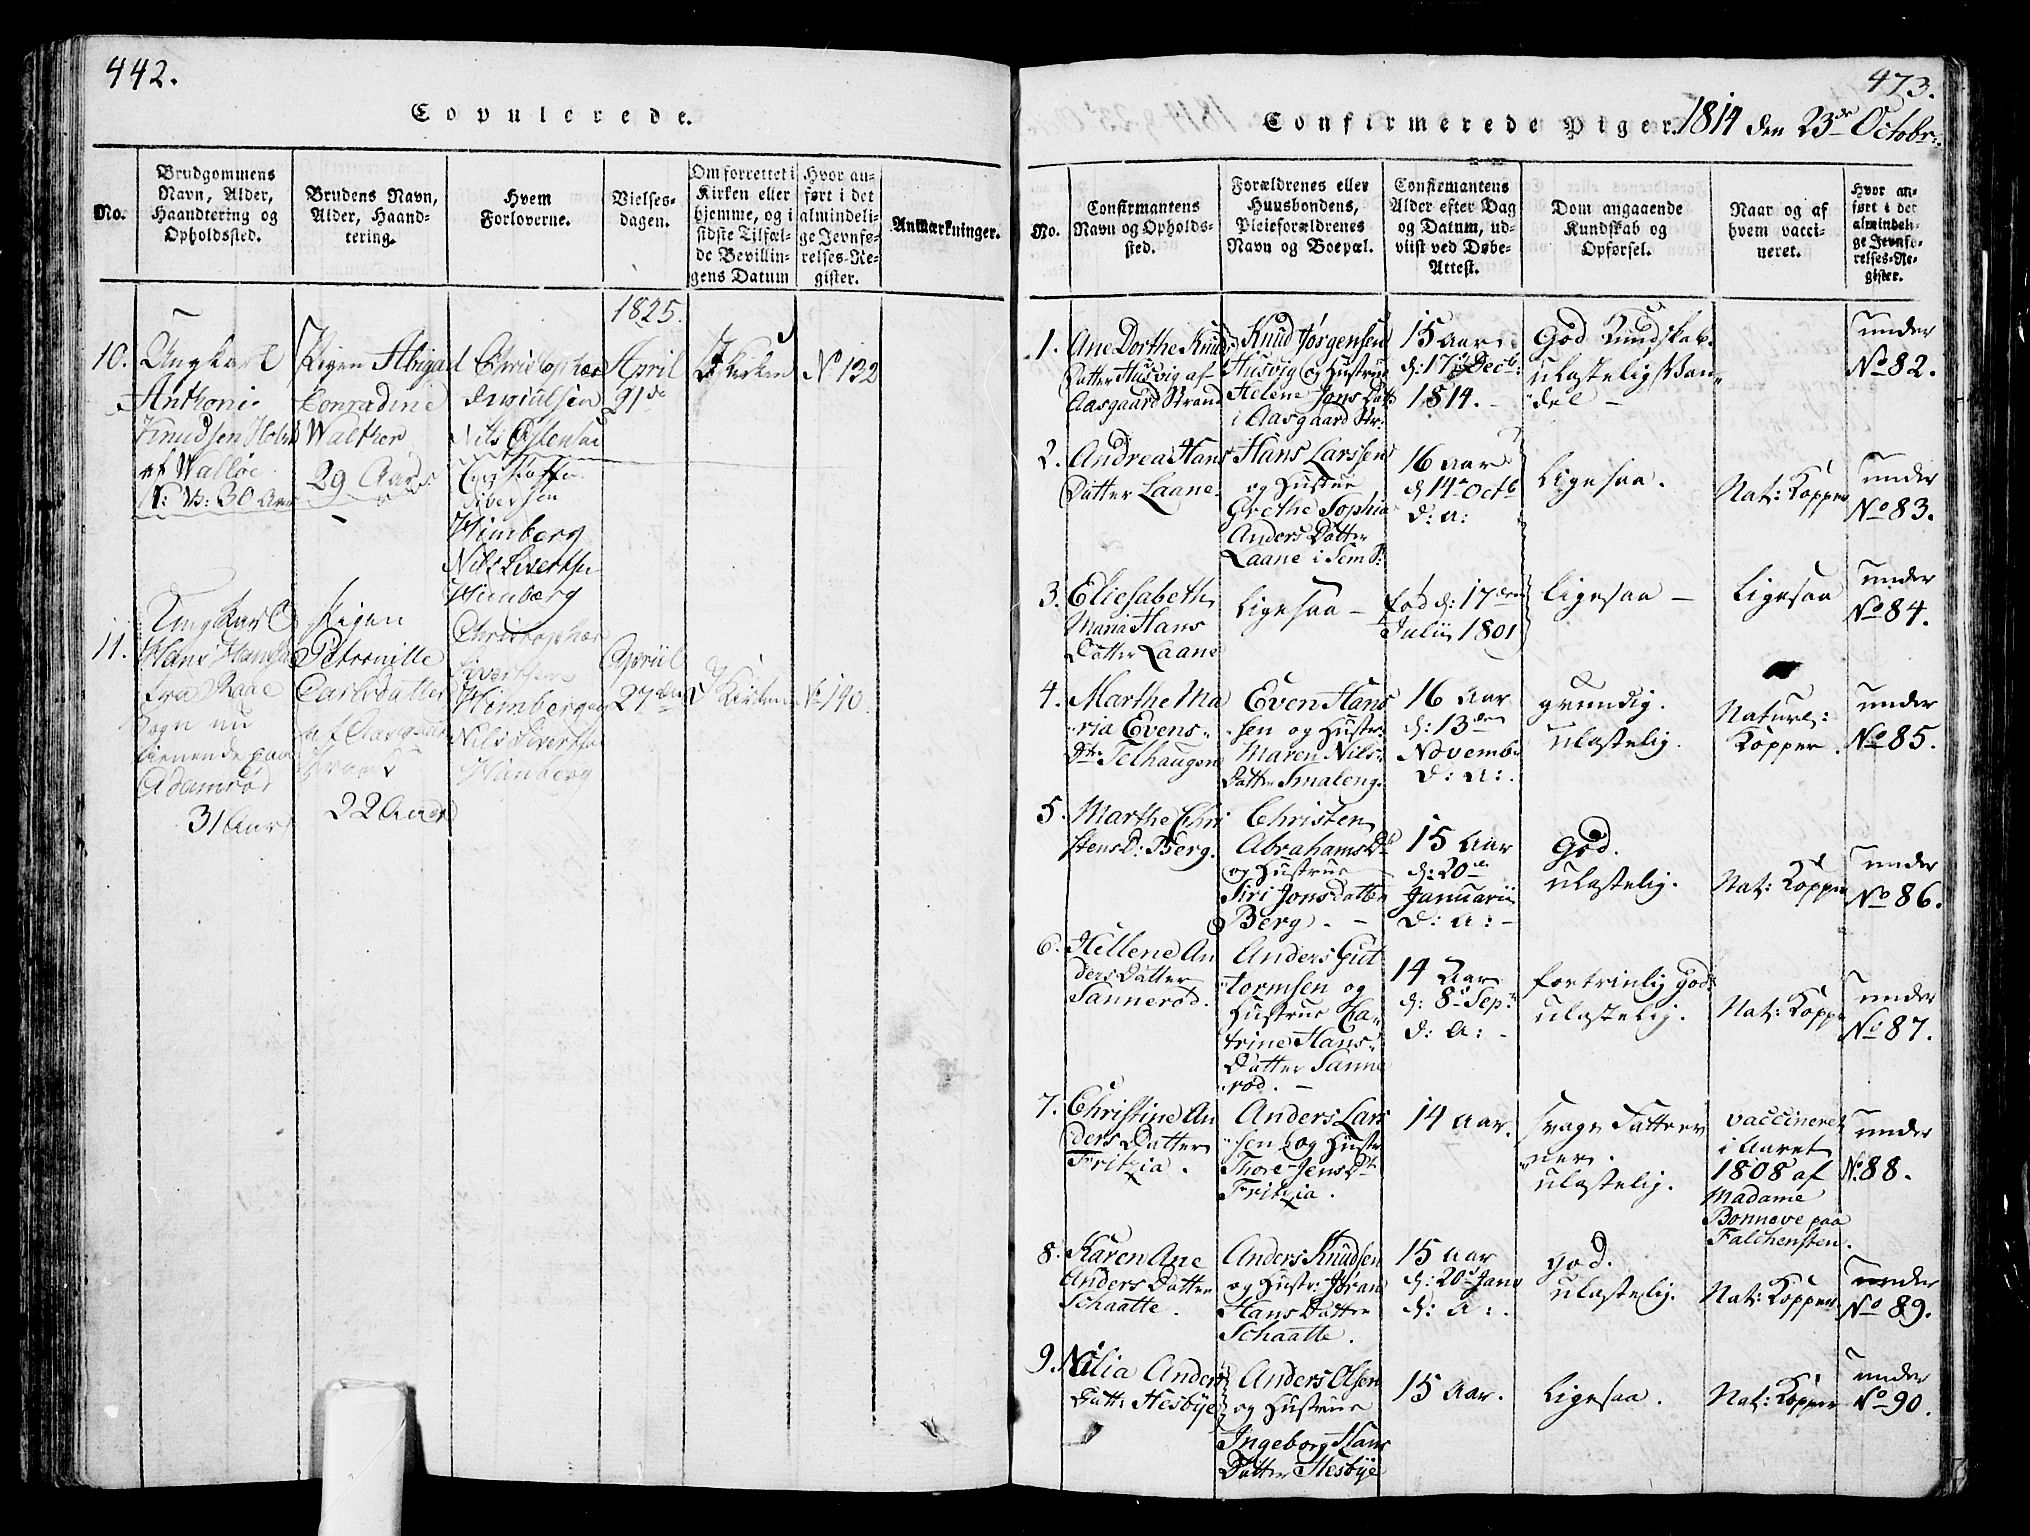 442.
Copulerede.
No.
Brudgommens
Navn, Alder,
Haandtering og
Opholdssted.
Brudens Navn,
Alder, Haand-
tering.
Hvem
Forloverne.
Vielses-
dagen.
Om forrettet i
Kirken eller
hjemme, og i
sidste Tilfæl-
de Bevillin-
gens Datum
Hvor an-
ført i det
almindeli-
ge Jevnfø-
relses-Re-
gister.
Anmærkninger.
1825.
10.
Ungkarl
Anthoni
Knudsen Holm
af Walløe
30 Aar
Pigen Abigael
Conradine
Walther
29 Aar
Christopher
Nils
Sivertsen
Himberg
Nils Sivertsen
Himberg
April
21de
Kirken
No 132
11.
Ungkarl
Hans Hansen
fra
Sogn nu
tienende paa
Adamrød
31 Aar
Pigen
Petronille
Carlsdatter
af Aasgaard
Strand
22 Aar
Christopher
Sivertsen
Himberg og
Nils Sivertsen
Himberg
April
27de
Kirken
No 140.
473.
Confirmerede Piger. 1814 den 23de Octobr:
No.
Confirmantens
Navn og Opholds-
sted.
Forældrenes eller
Huusbondens,
Pleieforældrenes
Navn og Boepæl.
Confirmantens
Alder efter Dag
og Datum, ud-
viist ved Døbe-
Attest.
Dom angaaende
Kundskab og
Opførsel.
Naar og af
hvem vacci-
neret.
Hvor an-
ført i det
almindeli-
ge Jevnfø-
relses-Re-
gister.
1.
Ane Dorthe Knuds
Datter Husvig af
Aasgaard Strand
Knud Jørgensen
Husvig og Hustrue
Helene Jens Datt
i Aasgaard Str:
15 Aar
d: 17de Decb:
1814.
God Kundskab.
ulastelig Van-
del
under
No 82.
2.
Andrea Hans
Datter Laane.
Hans Larssen
og Hustrue
Grethe Sophia
Anders Datter
Laane i Sem S:
16 Aar
d 14de Octb
d: a:
Ligesaa.
Nat: Kopper
under
No 83.
3.
Eliesabeth
Maria Hans
Datter Laane
Ligesaa
fød d: 17den
Julii 1801
Ligesaa
Ligesaa
under
No 84.
4.
Marthe Ma
ria Evens
Dtr Telhaugen
Even Hans
sen og Hustr:
Maren Nils
Datter Smaleng.
16 Aar
d: 13den
Novemb.
d: a:
grundig.
ulastelig.
Naturl:
Kopper.
under
No 85.
5.
Marthe Chri
stens D: Berg.
Christen
Abrahams
og Hustrue
Siri Jonsdatter
Berg.
15 Aar
d: 20de
Januarii
d: a:
God.
ulastelig.
Nat: Kopper
under
No 86.
6.
Hellene An
ders Datter
Sannerød.
Anders Gut
tormsen og
Hustrue Ca
trine Hans
Datter Sanne
rød.
14 Aar
d: 8de Sep:
d: a:
fortrinlig god.
ulastelig.
Nat: Kopper
under
No 87.
7.
Christine An
ders Datter
Fritzia.
Anders Lars
sen og Hustr
Thore Jens Dt
Fritzia.
14 Aar.
svage Fatteev
ner.
ulastelig.
vaccineret
i Aaret
1808 af
Madame
Bonneve paa
Falchensten.
under
No 88.
8.
Karen Ane
Anders Datter
Schaatte.
Anders Knudsen
og Hustr: Jøran
Hans Datter
Schaatte.
15 Aar
d: 20de Janv
d: a:
god.
ulastelig.
Nat: Kopper.
under
No 89.
9.
Nilia Anders
Datt: Hesbÿe
Anders Olsen
og Hustrue
Ingeborg Hans
Datter Hesbÿe
15 Aar.
Ligesaa.
Nat: Kopper
under
No 90.